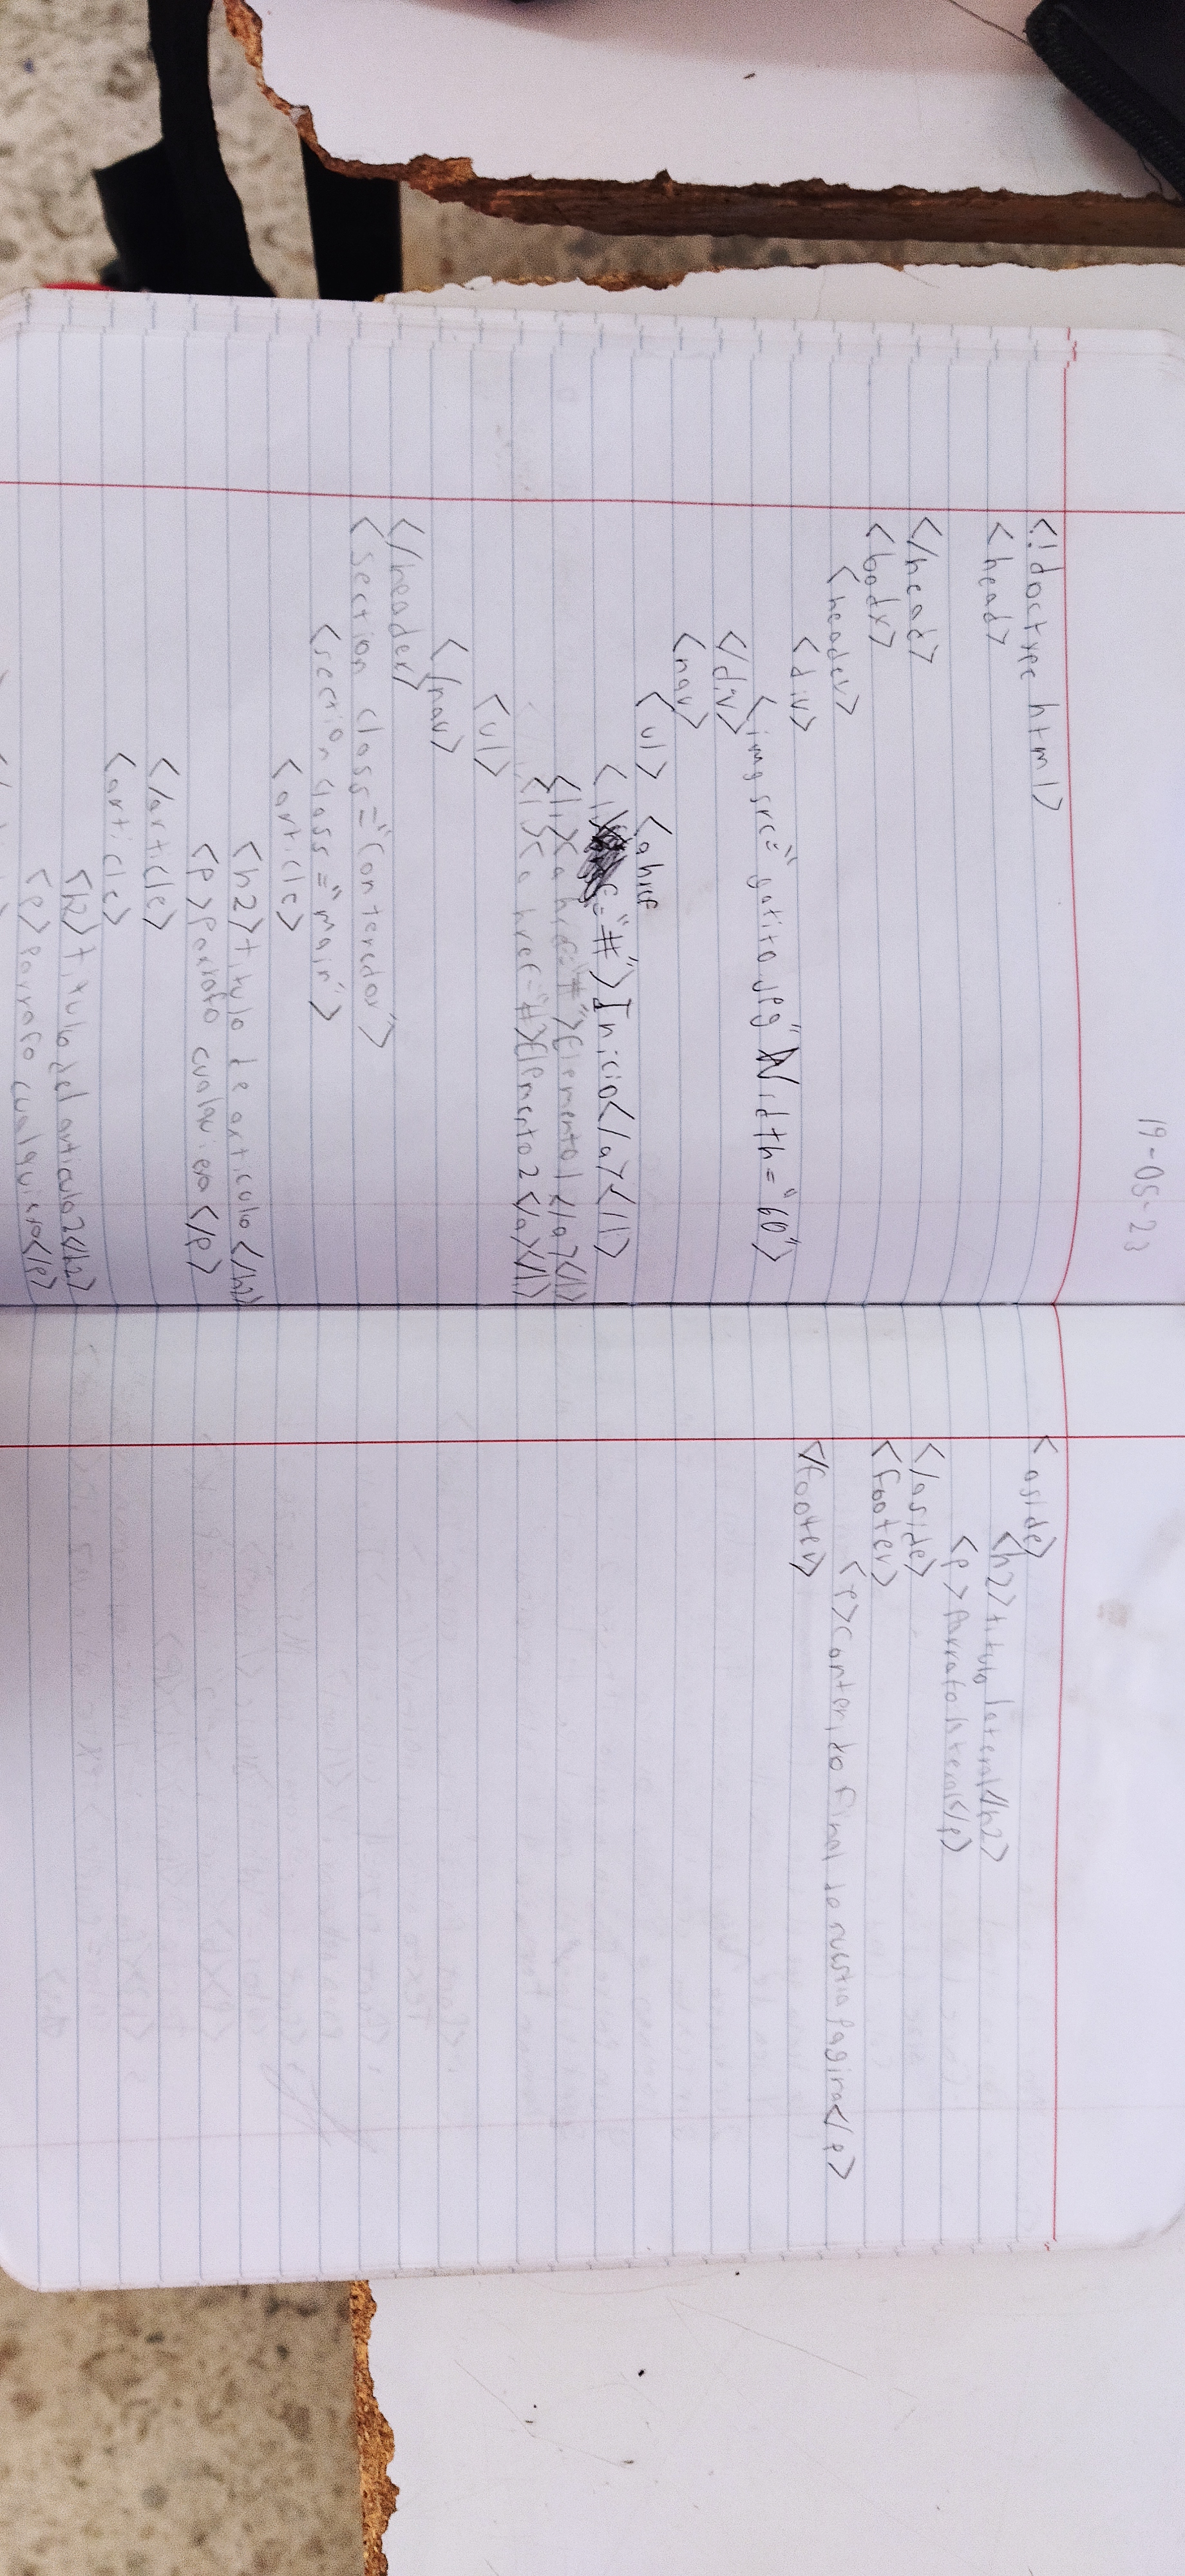 19-05-23
<!doctype html>
<head>
</head>
<body>
<header>
<div>
<img src="gatito.jpg" Width="60">
</div>
<nav>
<ul> <a href
<li> ="#">Inicio</a></li>
<li><a href="#">Elemento1</a></li>
<li><a href="#>Elemento2</a></li>
<ul>
</nav>
</header>
<section class="contenedor">
<section class="main">
<article>
<h2>titulo de articulo</h2>
<p>Parrafo cualquiera</p>
</article>
<article>
<h2>titulo del articulo2</h2>
<p>Parrafo cualquiera</p>
<aside>
<h2>titulo lateral</h2>
<p>Parrafo lateral</p>
</aside>
<footer>
<p>contenido final de nuestra pagina</p>
</footer>